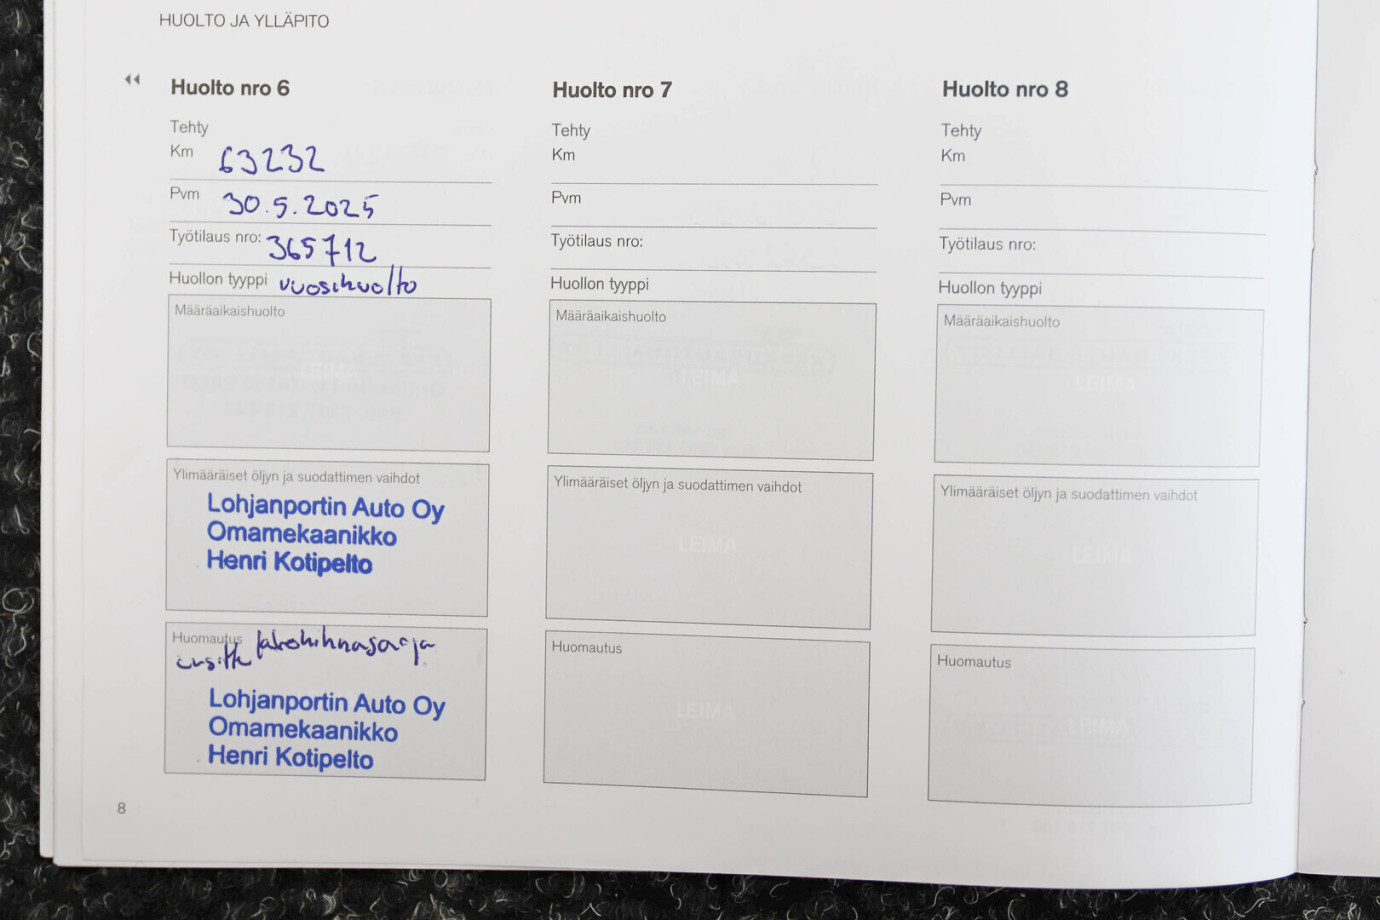 HUOLTO JA YLLÄPITO
Huolto nro 6
Tehty
Km 63232
Pvm 30.5.2025
Työtilaus nro: 365712
Huollon tyyppi vuosihuolto
Määräaikaishuolto
LEIMA
Ylimääräiset öljyn ja suodattimen vaihdot
Lohjanportin Auto Oy
Omamekaanikko
Henri Kotipelto
Huomautus jakohihnasarja
uusittu
Lohjanportin Auto Oy
Omamekaanikko
Henri Kotipelto
Huolto nro 7
Tehty
Km
Pvm
Työtilaus nro:
Huollon tyyppi
Määräaikaishuolto
LEIMA
Ylimääräiset öljyn ja suodattimen vaihdot
LEIMA
Huomautus
LEIMA
Huolto nro 8
Tehty
Km
Pvm
Työtilaus nro:
Huollon tyyppi
Määräaikaishuolto
LEIMA
Ylimääräiset öljyn ja suodattimen vaihdot
LEIMA
Huomautus
LEIMA
8